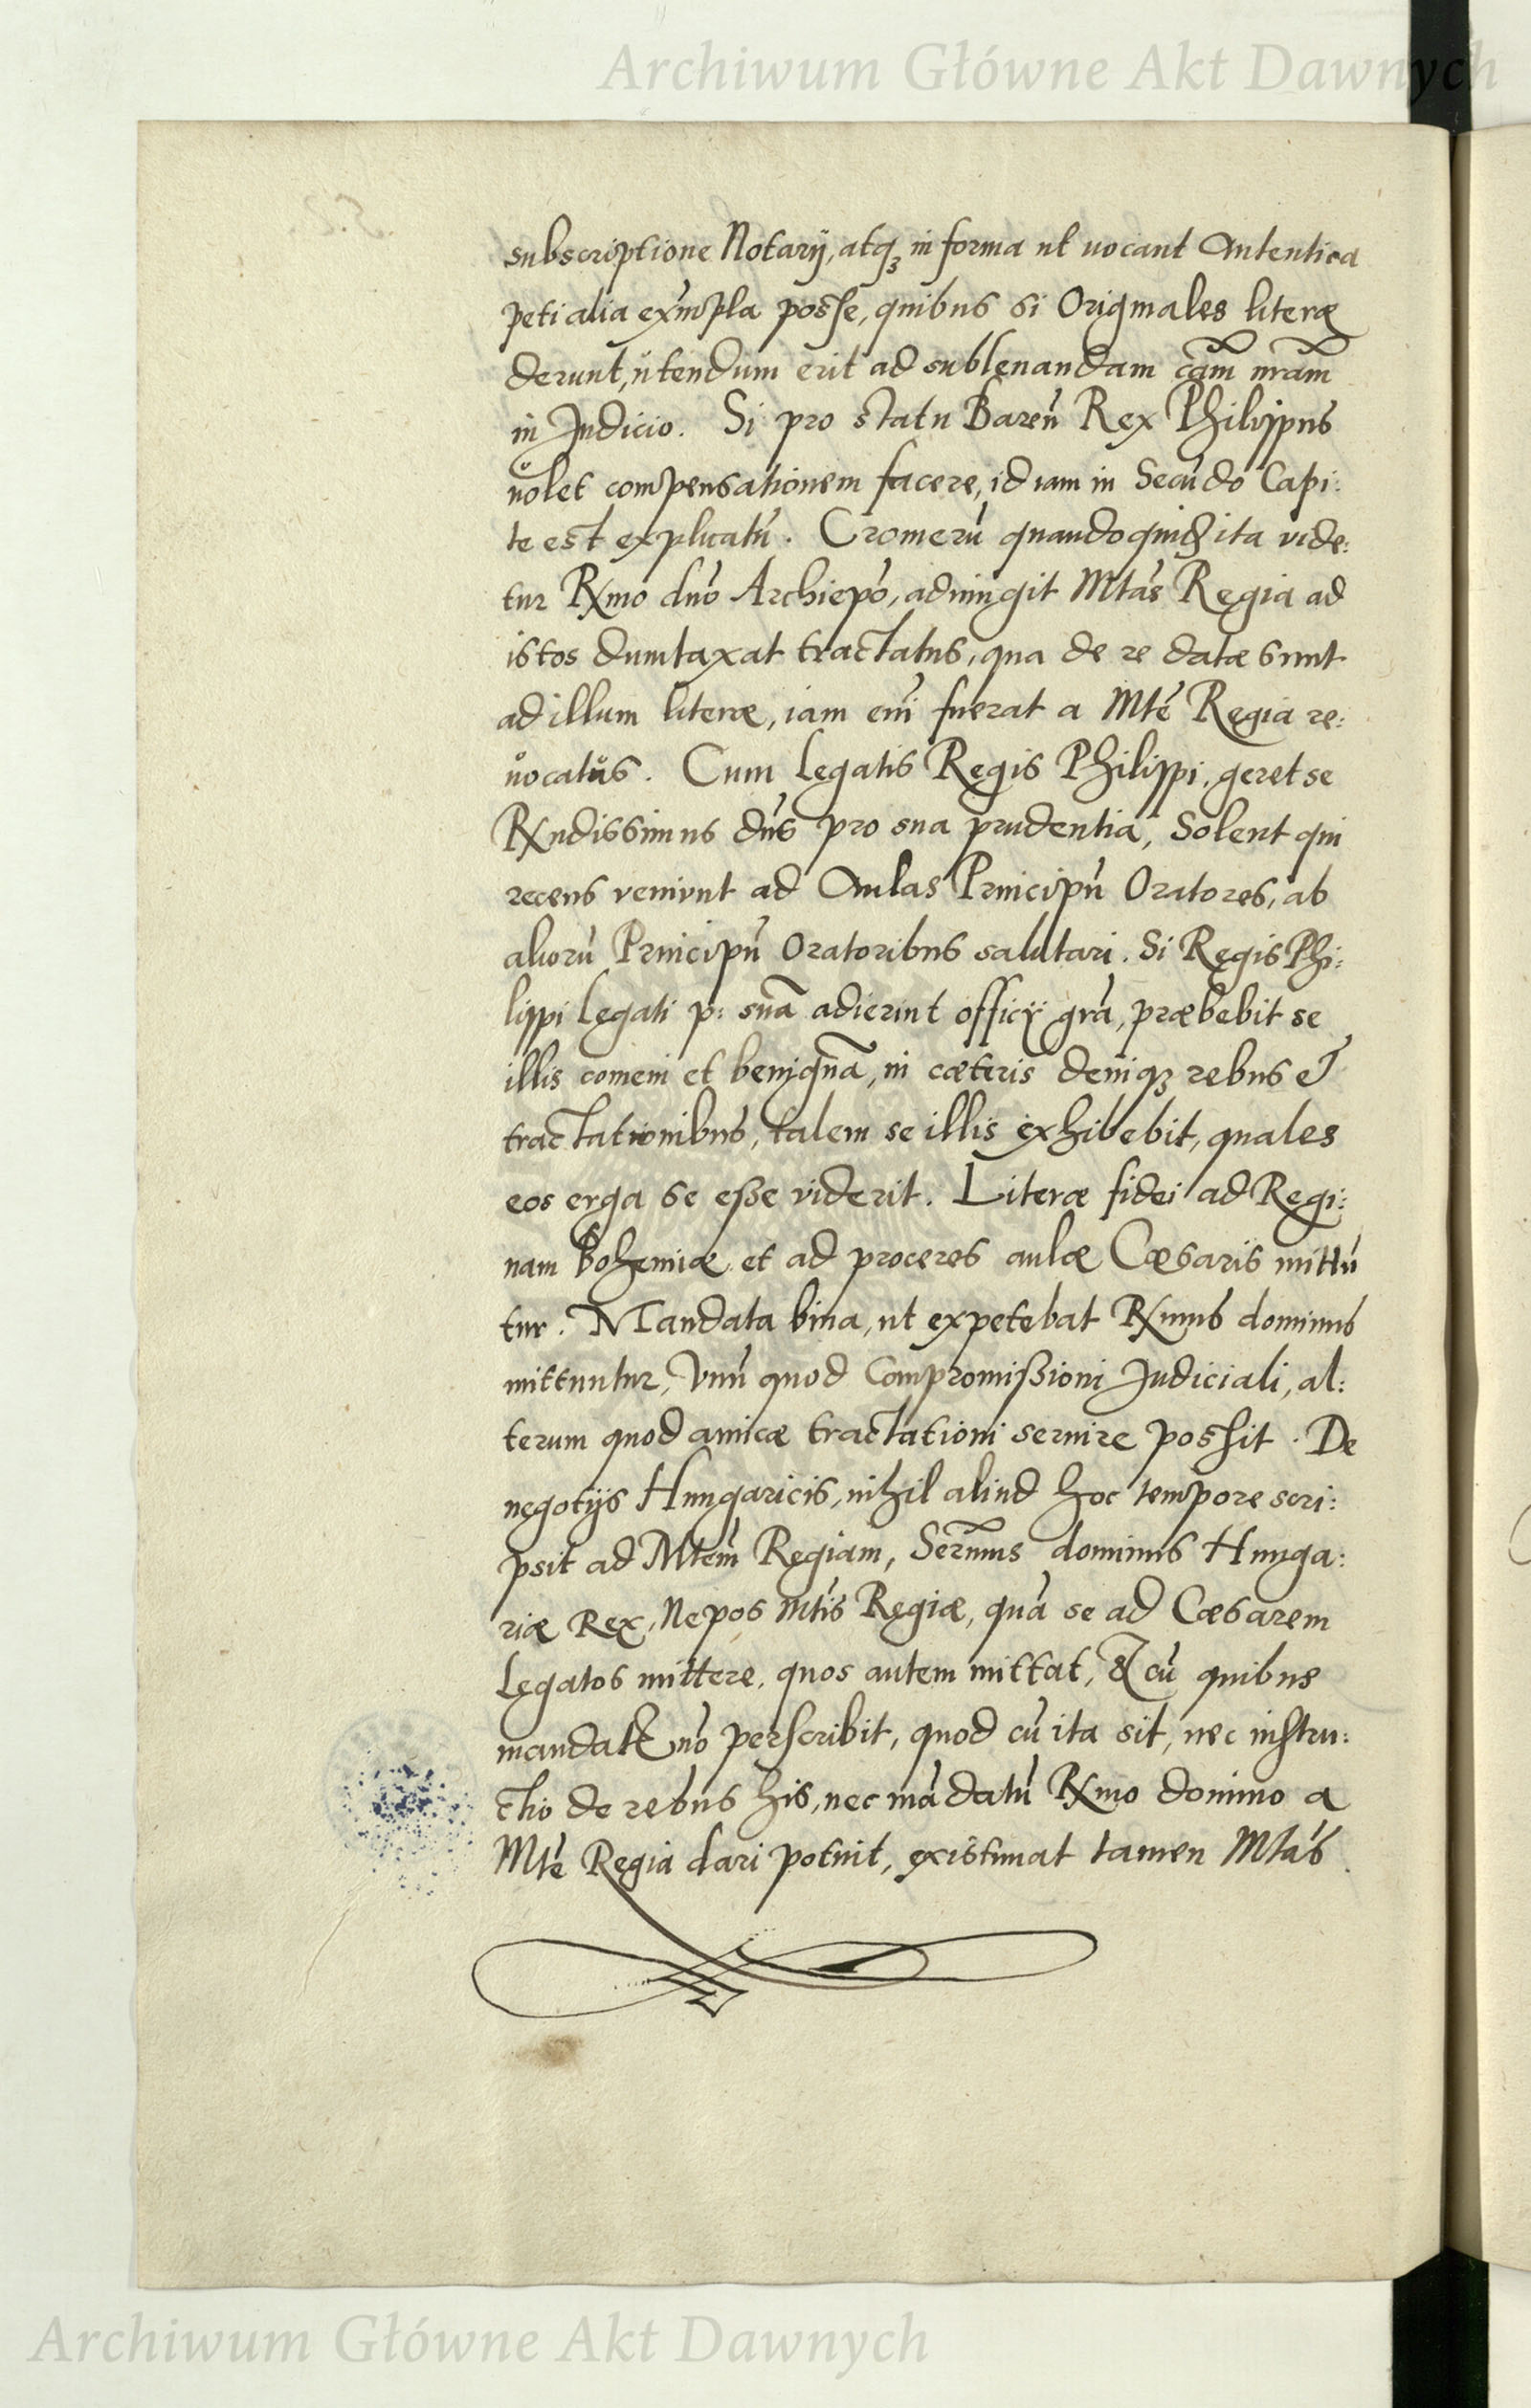 Archiwum Główne Akt Dawnych
subscriptione Notarij, atq3 in forma ut uocant Autentica
peti alia exẽmpla posse, quibus si Originales literæ
derunt, utendum erit ad subleuandam cãm nrãm
in Judicio. Si pro statu Bareñ Rex Philippus
uolet compensationem facere, id iam in Secũdo Capi:
te est explicatũ. Cromerũ quandoquidẽ ita vide:
tur Rxmo dnõ Archiepõ, adiungit Mtãs Regia ad
istos dumtaxat tractatus, qua de re datæ sunt
ad illum literæ, iam eni͂ fuerat a Mtẽ Regia re:
uocatus. Cum Legatis Regis Philippi, geret se
Rxndissimus dñs pro sua prudentia, Solent qui
recens veniunt ad Aulas Principũ Oratores, ab
aliorũ Principũ Oratoribus salutari. Si Regis Phi:
lippi Legati p: suã adierint officij grã, præbebit se
illis comem et benignã, in cæteris deniq3 rebus et
tractationibus, talem se illis exhibebit, quales
eos erga se eße viderit. Literæ fidei ad Regi:
nam Bohemiæ et ad proceres aulæ Cæsaris mittũ
tur. Mandata bina, ut expetebat Rxmus dominus
mittuntur, Vnũ quod Compromißioni Judiciali, al:
terum quod amicæ tractationi seruire possit. De
negotijs Hungaricis, nihil aliud hoc tempore scri:
psit ad Mtem̃ Regiam, Sermus dominus Hunga:
riæ Rex, Nepos Mtis Regiæ, quã se ad Cæsarem
Legatos mittere, quos autem mittat, & cũ quibus
mandatis nõ perscribit, quod cũ ita sit, nec instru:
ctio de rebus his, nec mãdatũ Rxmo domino a
Mtẽ Regia dari potuit, existimat tamen Mtãs
Archiwum Główne Akt Dawnych